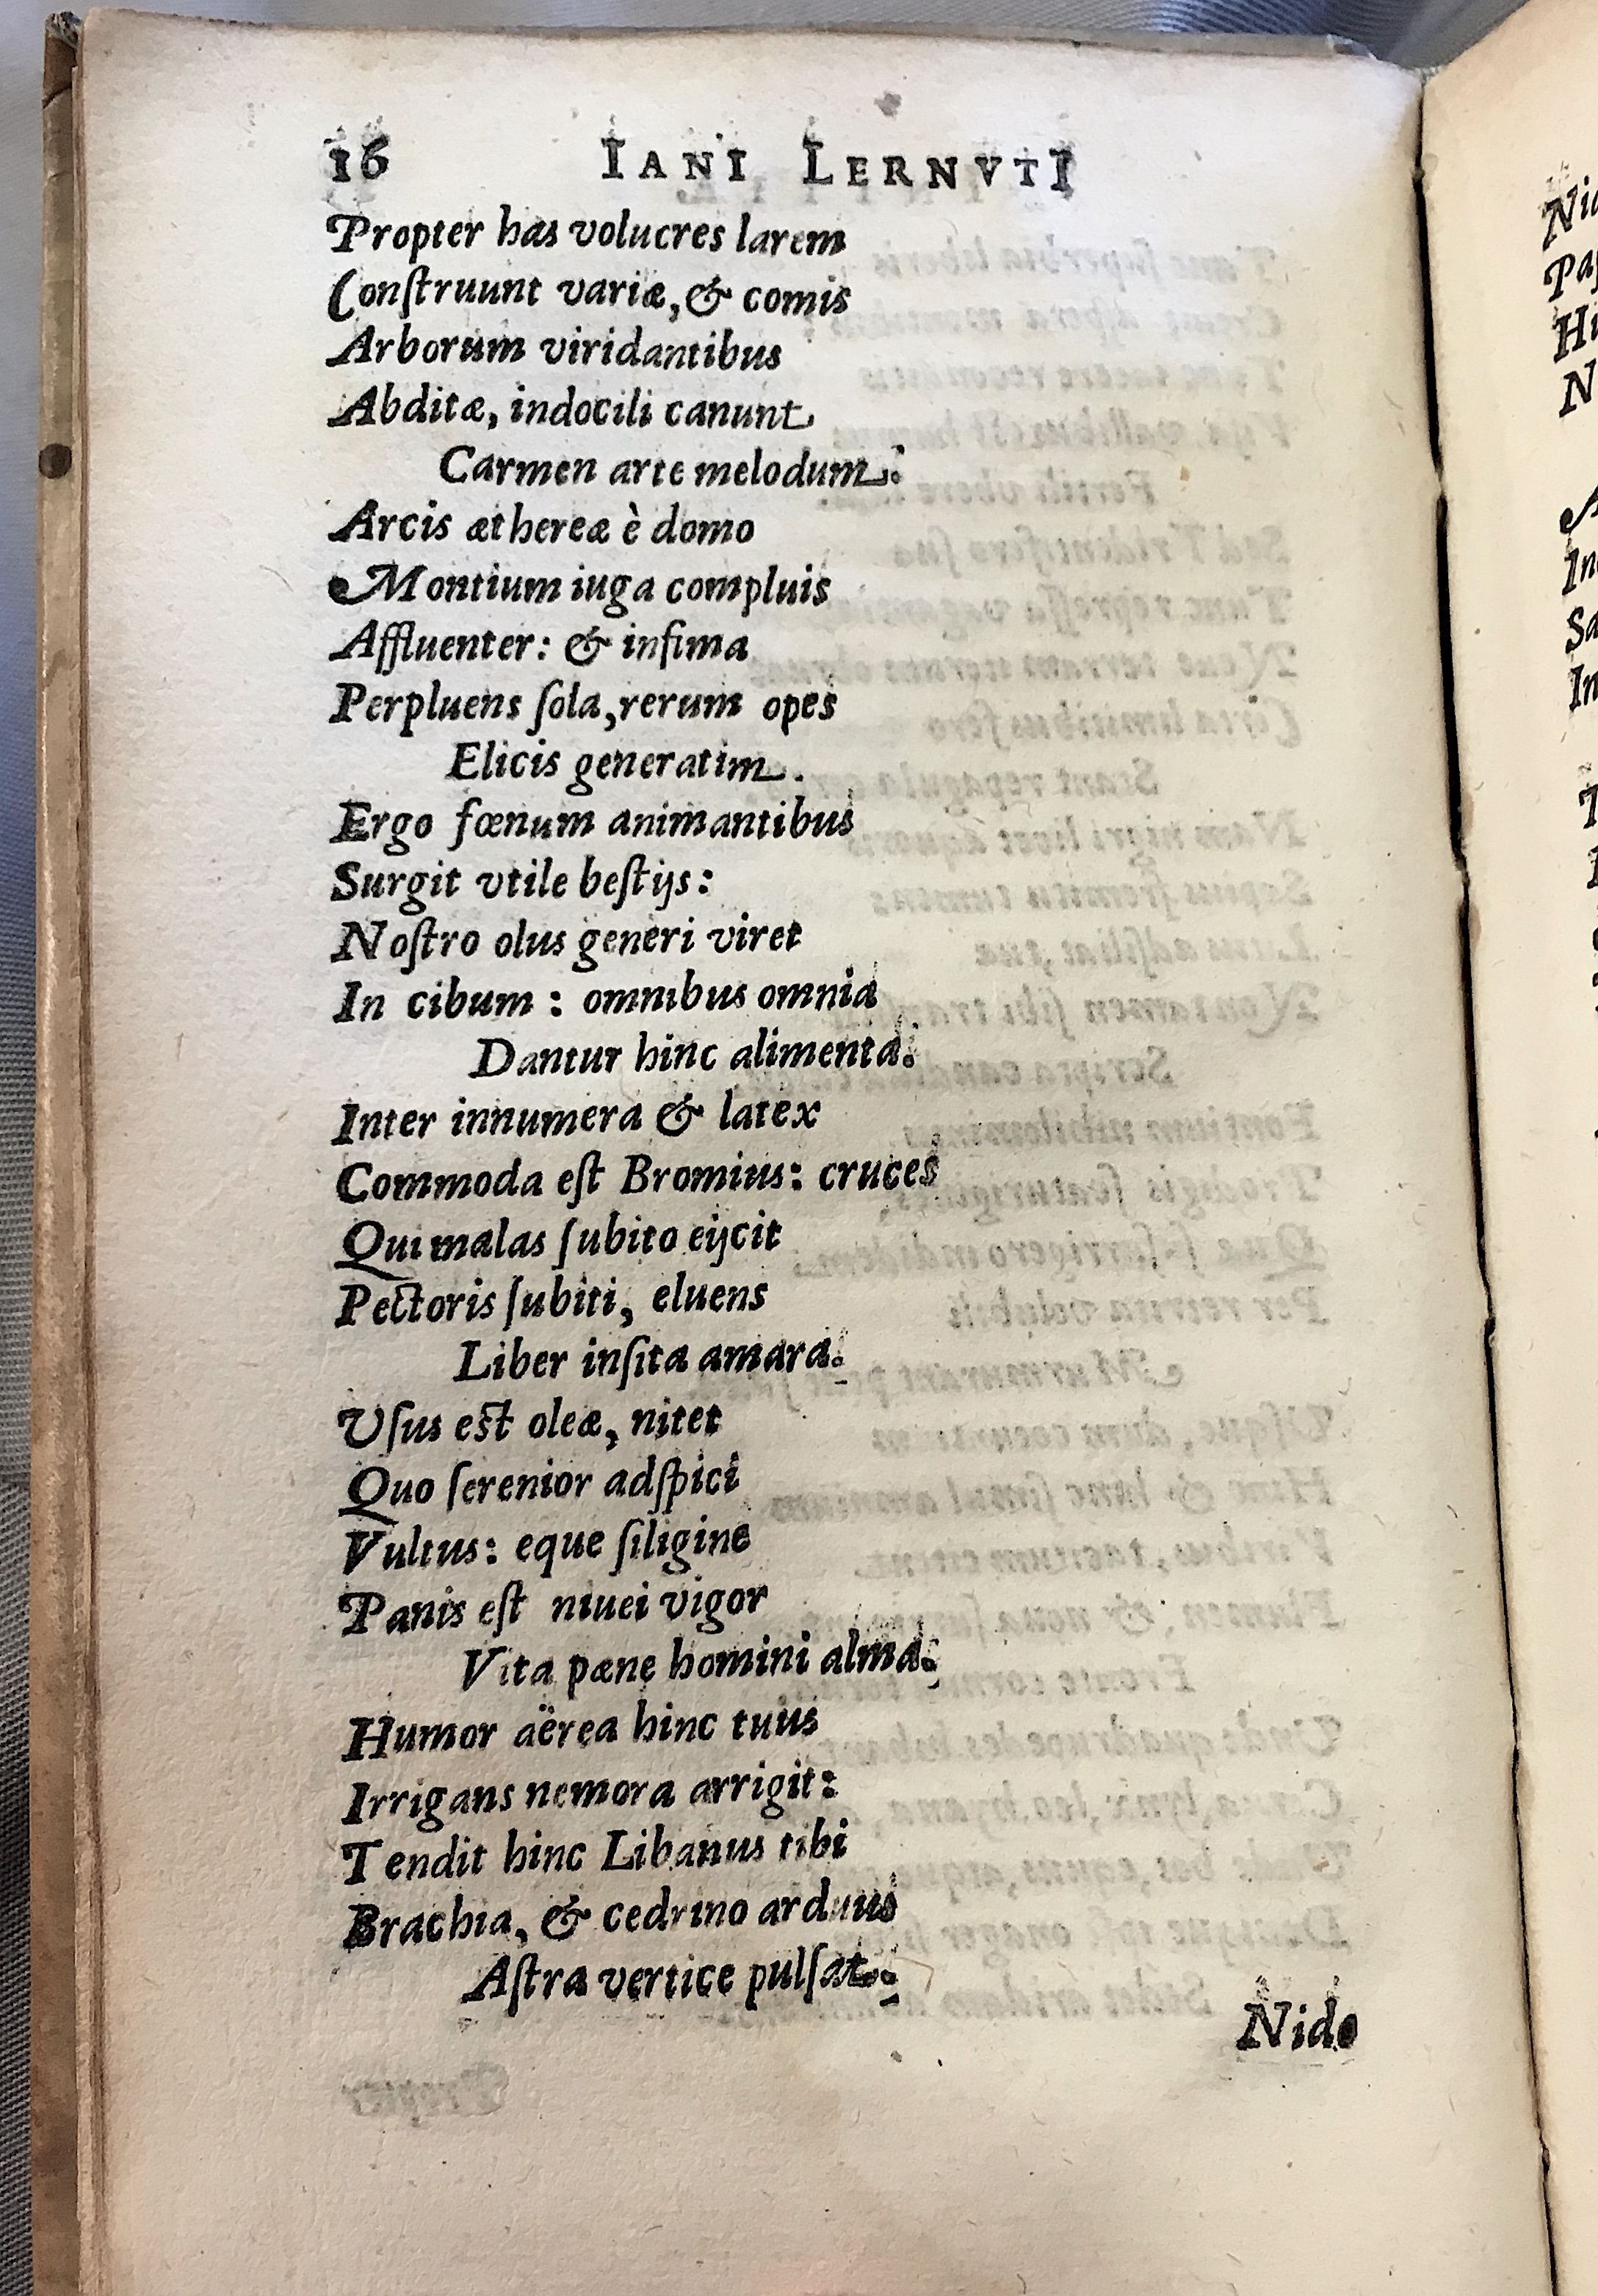 16 IANI LERNVTI
Propter has volucres larem
Conſtruunt variæ, & comis
Arborum viridantibus
Abditæ, indocili canunt
Carmen arte melodum.
Arcis æthereæ è domo
Montium iuga compluis
Affluenter: & infima
Perpluens ſola, rerum opes
Elicis generatim.
Ergo fœnum animantibus
Surgit vtile beſtijs:
Noſtro olus generi viret
In cibum : omnibus omnia
Dantur hinc alimenta.
Inter innumera & latex
Commoda eſt Bromius: cruces
Qui malas ſubito eijcit
Pectoris ſubiti, eluens
Liber inſita amara.
Vſus eſt oleæ, nitet
Quo ſerenior adſpici
Vultus: eque ſiligine
Panis eſt niuei vigor
Vita pæne homini alma.
Humor aërea hinc tuus
Irrigans nemora arrigit:
Tendit hinc Libanus tibi
Brachia, & cedrino arduus
Aſtra vertice pulſat.
Nido